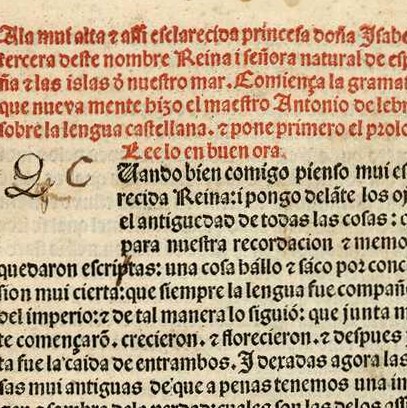 Ala mui alta ⁊ assi esclarecida princesa doña Isabe
tercera deste nombre Reina i señora natural de esp
ña ⁊ las islas ð nuestro mar. Comiença la grama
que nueva mente hizo el maestro Antonio de lebr
sobre la lengua castellana. ⁊ pone primero el prolo
Lee lo en buen ora.
Q C
Uando bien comigo pienso mui es
recida Reina: i pongo delãte los oj
el antiguedad de todas las cosas: q
para nuestra recordacion ⁊ memo
quedaron escriptas: una cosa hállo ⁊ sáco por conc
sion mui cierta: que siempre la lengua fue compañe
del imperio: ⁊ de tal manera lo siguió: que junta m
te començarõ. crecieron. ⁊ florecieron. ⁊ despues j
ta fue la caida de entrambos. I dexadas agora las
sas mui antiguas de que a penas tenemos una im